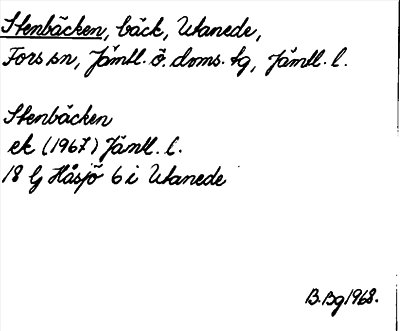 Stenbäcken, bäck, Utanede,
Fors sn, Jämtl. ö. doms. tg, Jämtl. l.
Stenbäcken
ek (1967) Jämtl. l.
18 G Håsjö 6 i Utanede
B.Bg 1968.